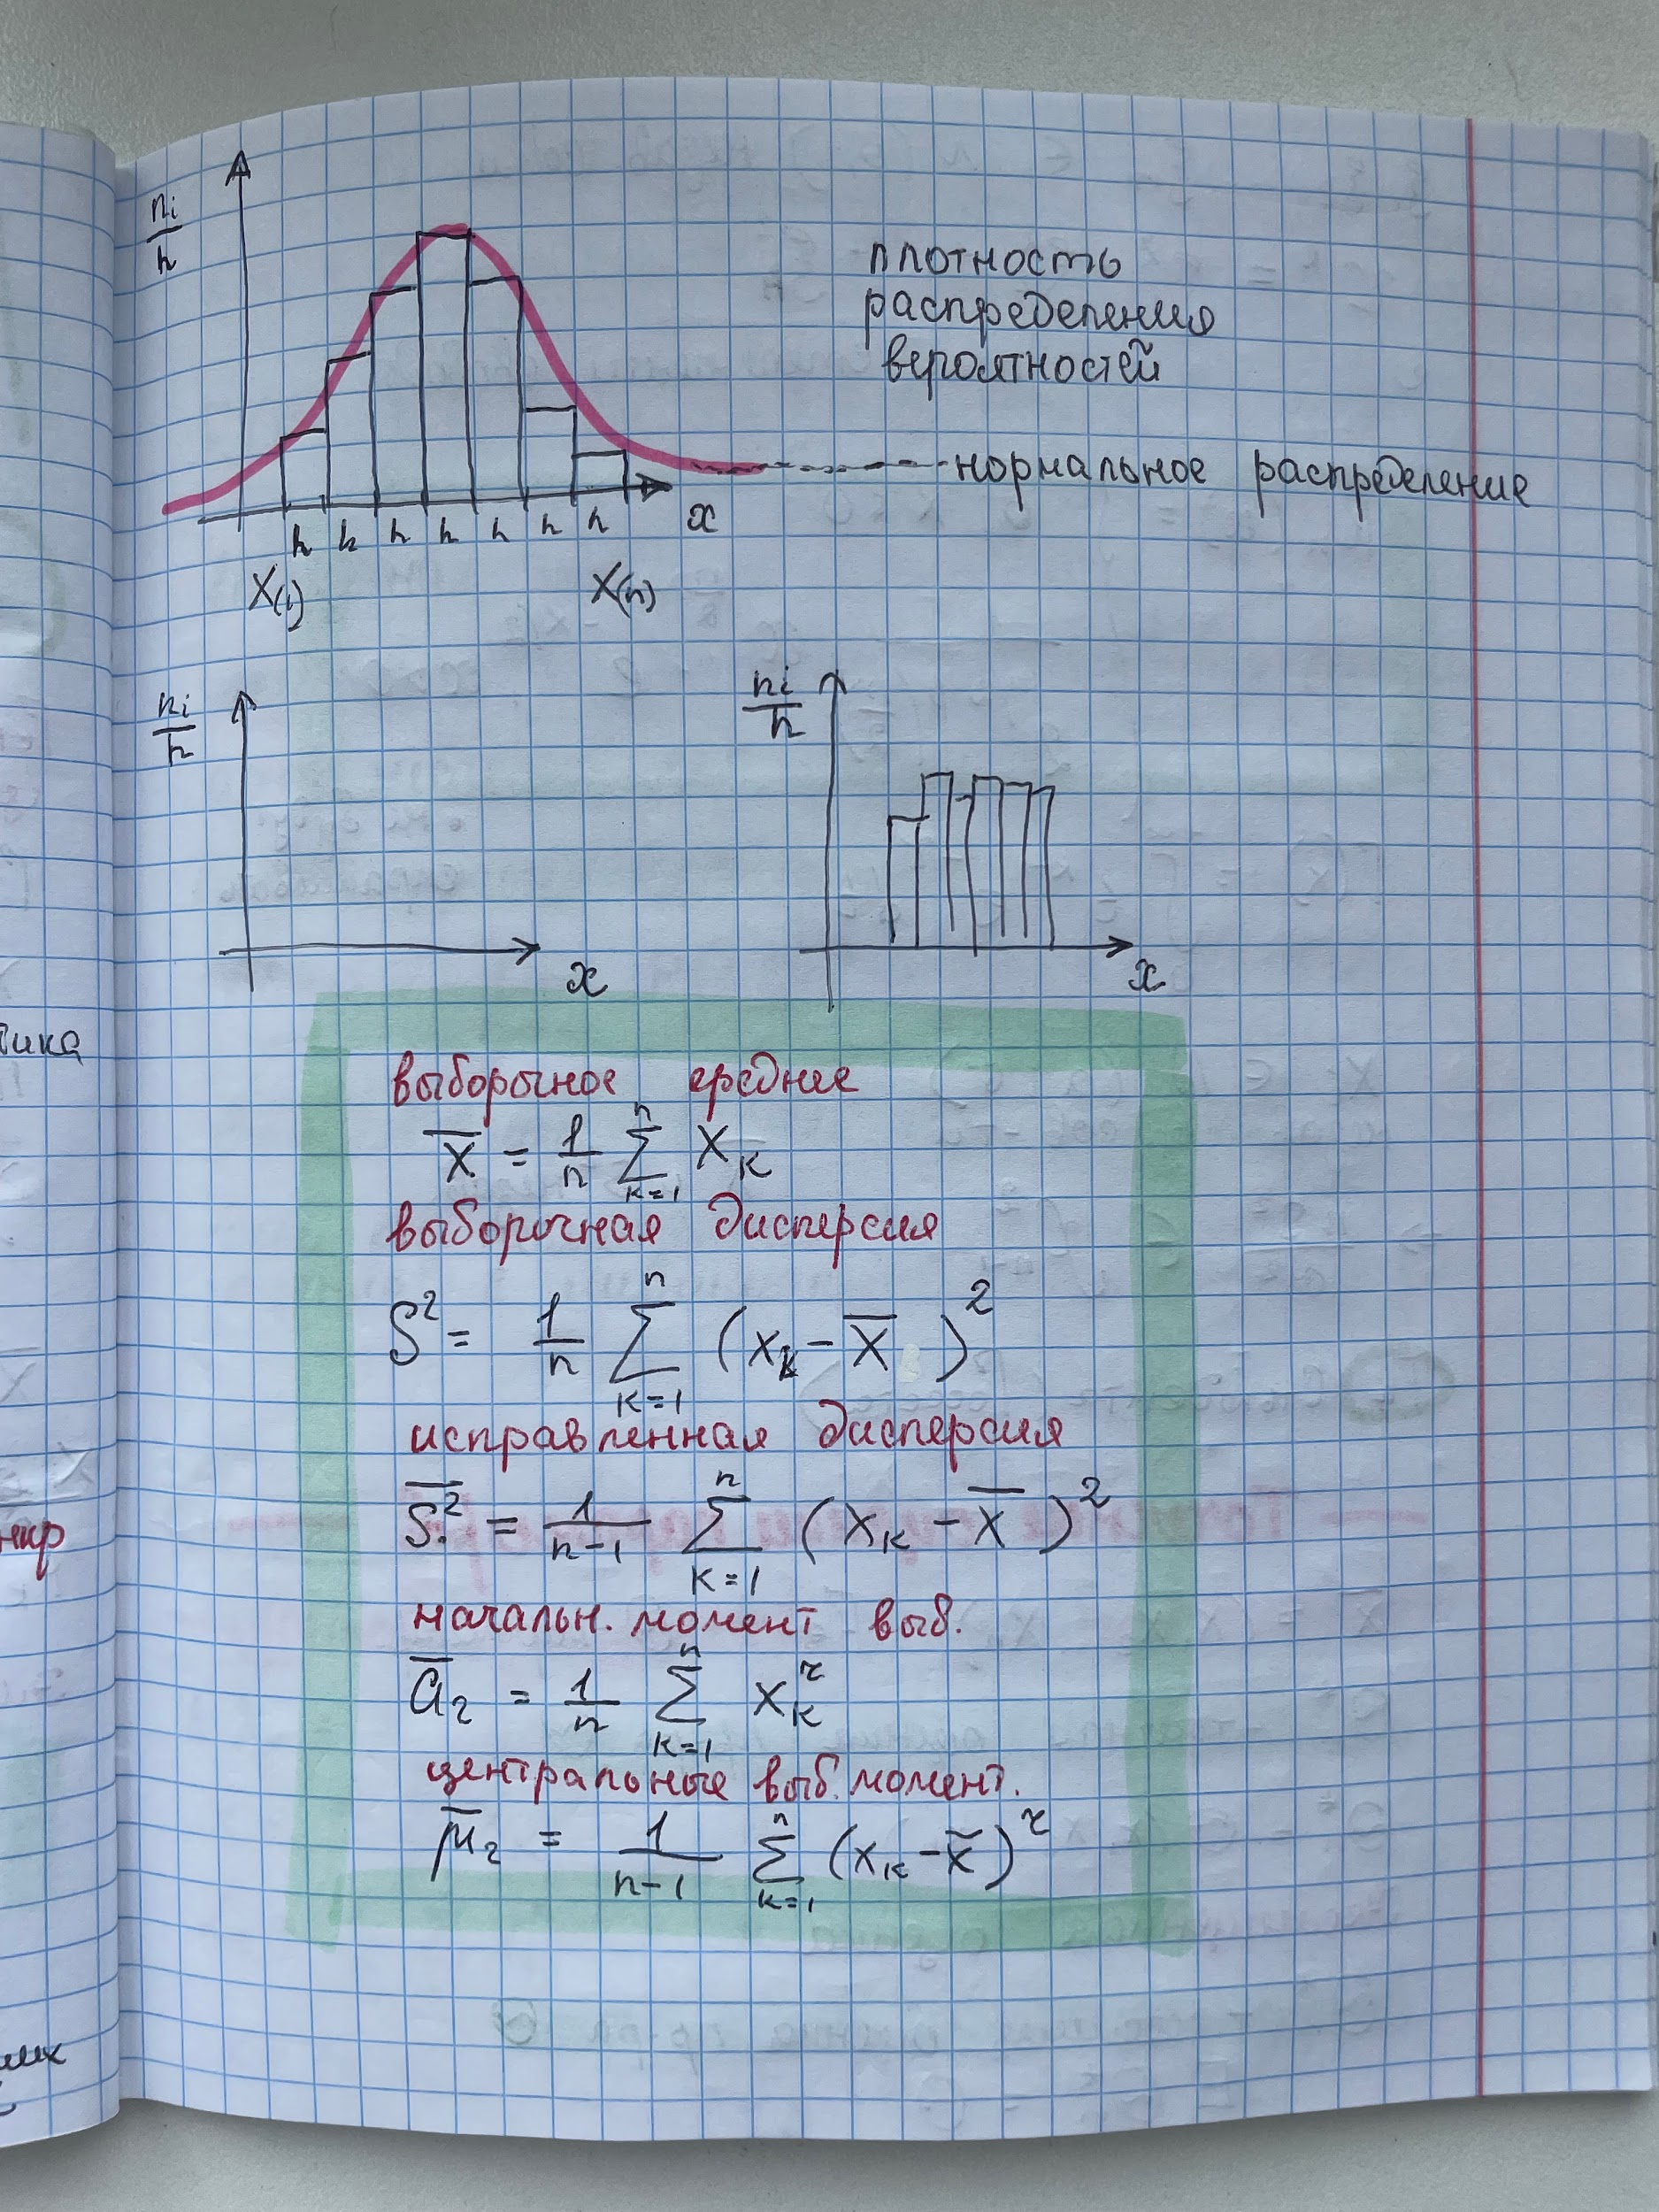 nᵢ/h
плотность
распределения
вероятностей
нормальное распределение
h h h h h h h x
X₍₁₎ X₍ₙ₎
nᵢ/h nᵢ/h
x x
выборочное среднее
X̅ = 1/n ∑ₖ₌₁ⁿ Xₖ
выборочная дисперсия
S² = 1/n ∑ₖ₌₁ⁿ (xₖ - X̅)²
исправленная дисперсия
S̅² = 1/(n-1) ∑ₖ₌₁ⁿ (xₖ - X̅)²
начальн. момент выб.
a̅ᵣ = 1/n ∑ₖ₌₁ⁿ xₖʳ
центральные выб. момент.
μ̅ᵣ = 1/(n-1) ∑ₖ₌₁ⁿ (xₖ - x̅)ʳ
тика